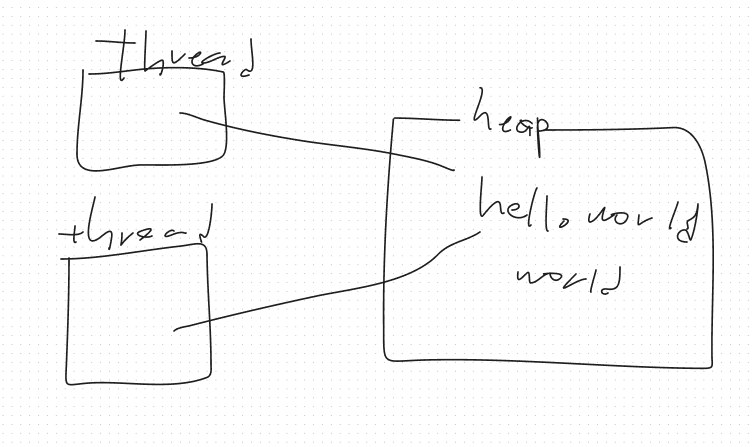 thread
heap
thread
hello world
world